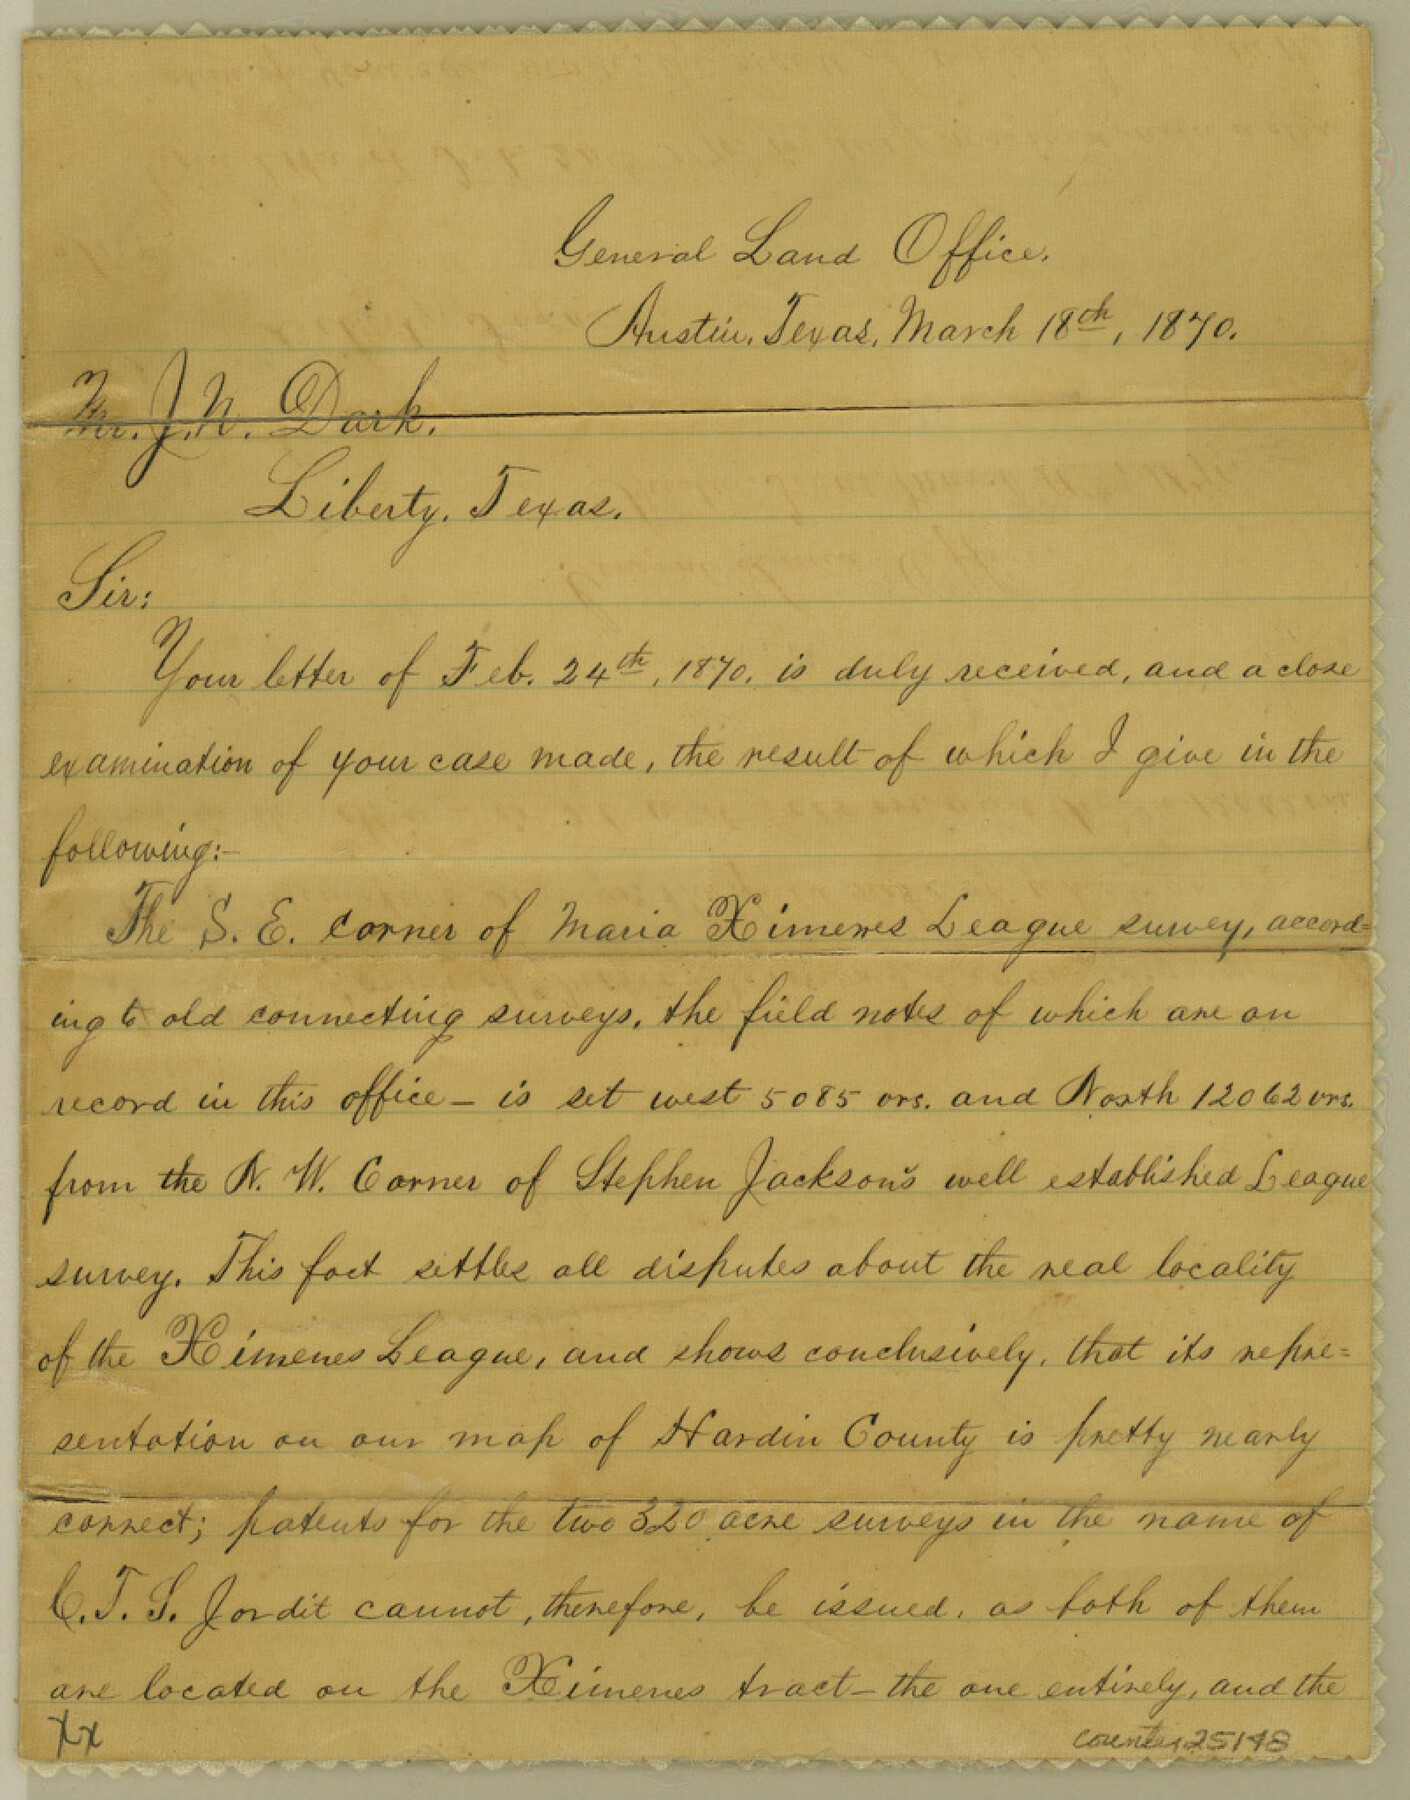 General Land Office.
Austin, Texas, March 18th, 1870.
Mr. J. N. Dark.
Liberty, Texas.
Sir:
Your letter of Feb. 24th, 1870, is duly received, and a close
examination of your case made, the result of which I give in the
following:-
The S. E. corner of Maria Ximenes League survey, accord=
ing to old connecting surveys, the field notes of which are on
record in this office - is set west 5085 vrs. and North 12062 vrs.
from the N. W. Corner of Stephen Jackson's well established League
survey. This fact settles all disputes about the real locality
of the Ximenes League, and shows conclusively, that its repre=
sentation on our map of Hardin County is pretty nearly
correct; patents for the two 320 acre surveys in the name of
C. T. S. Jordit cannot, therefore, be issued, as both of them
are located on the Ximenes tract - the one entirely, and the
xx
counter 25148